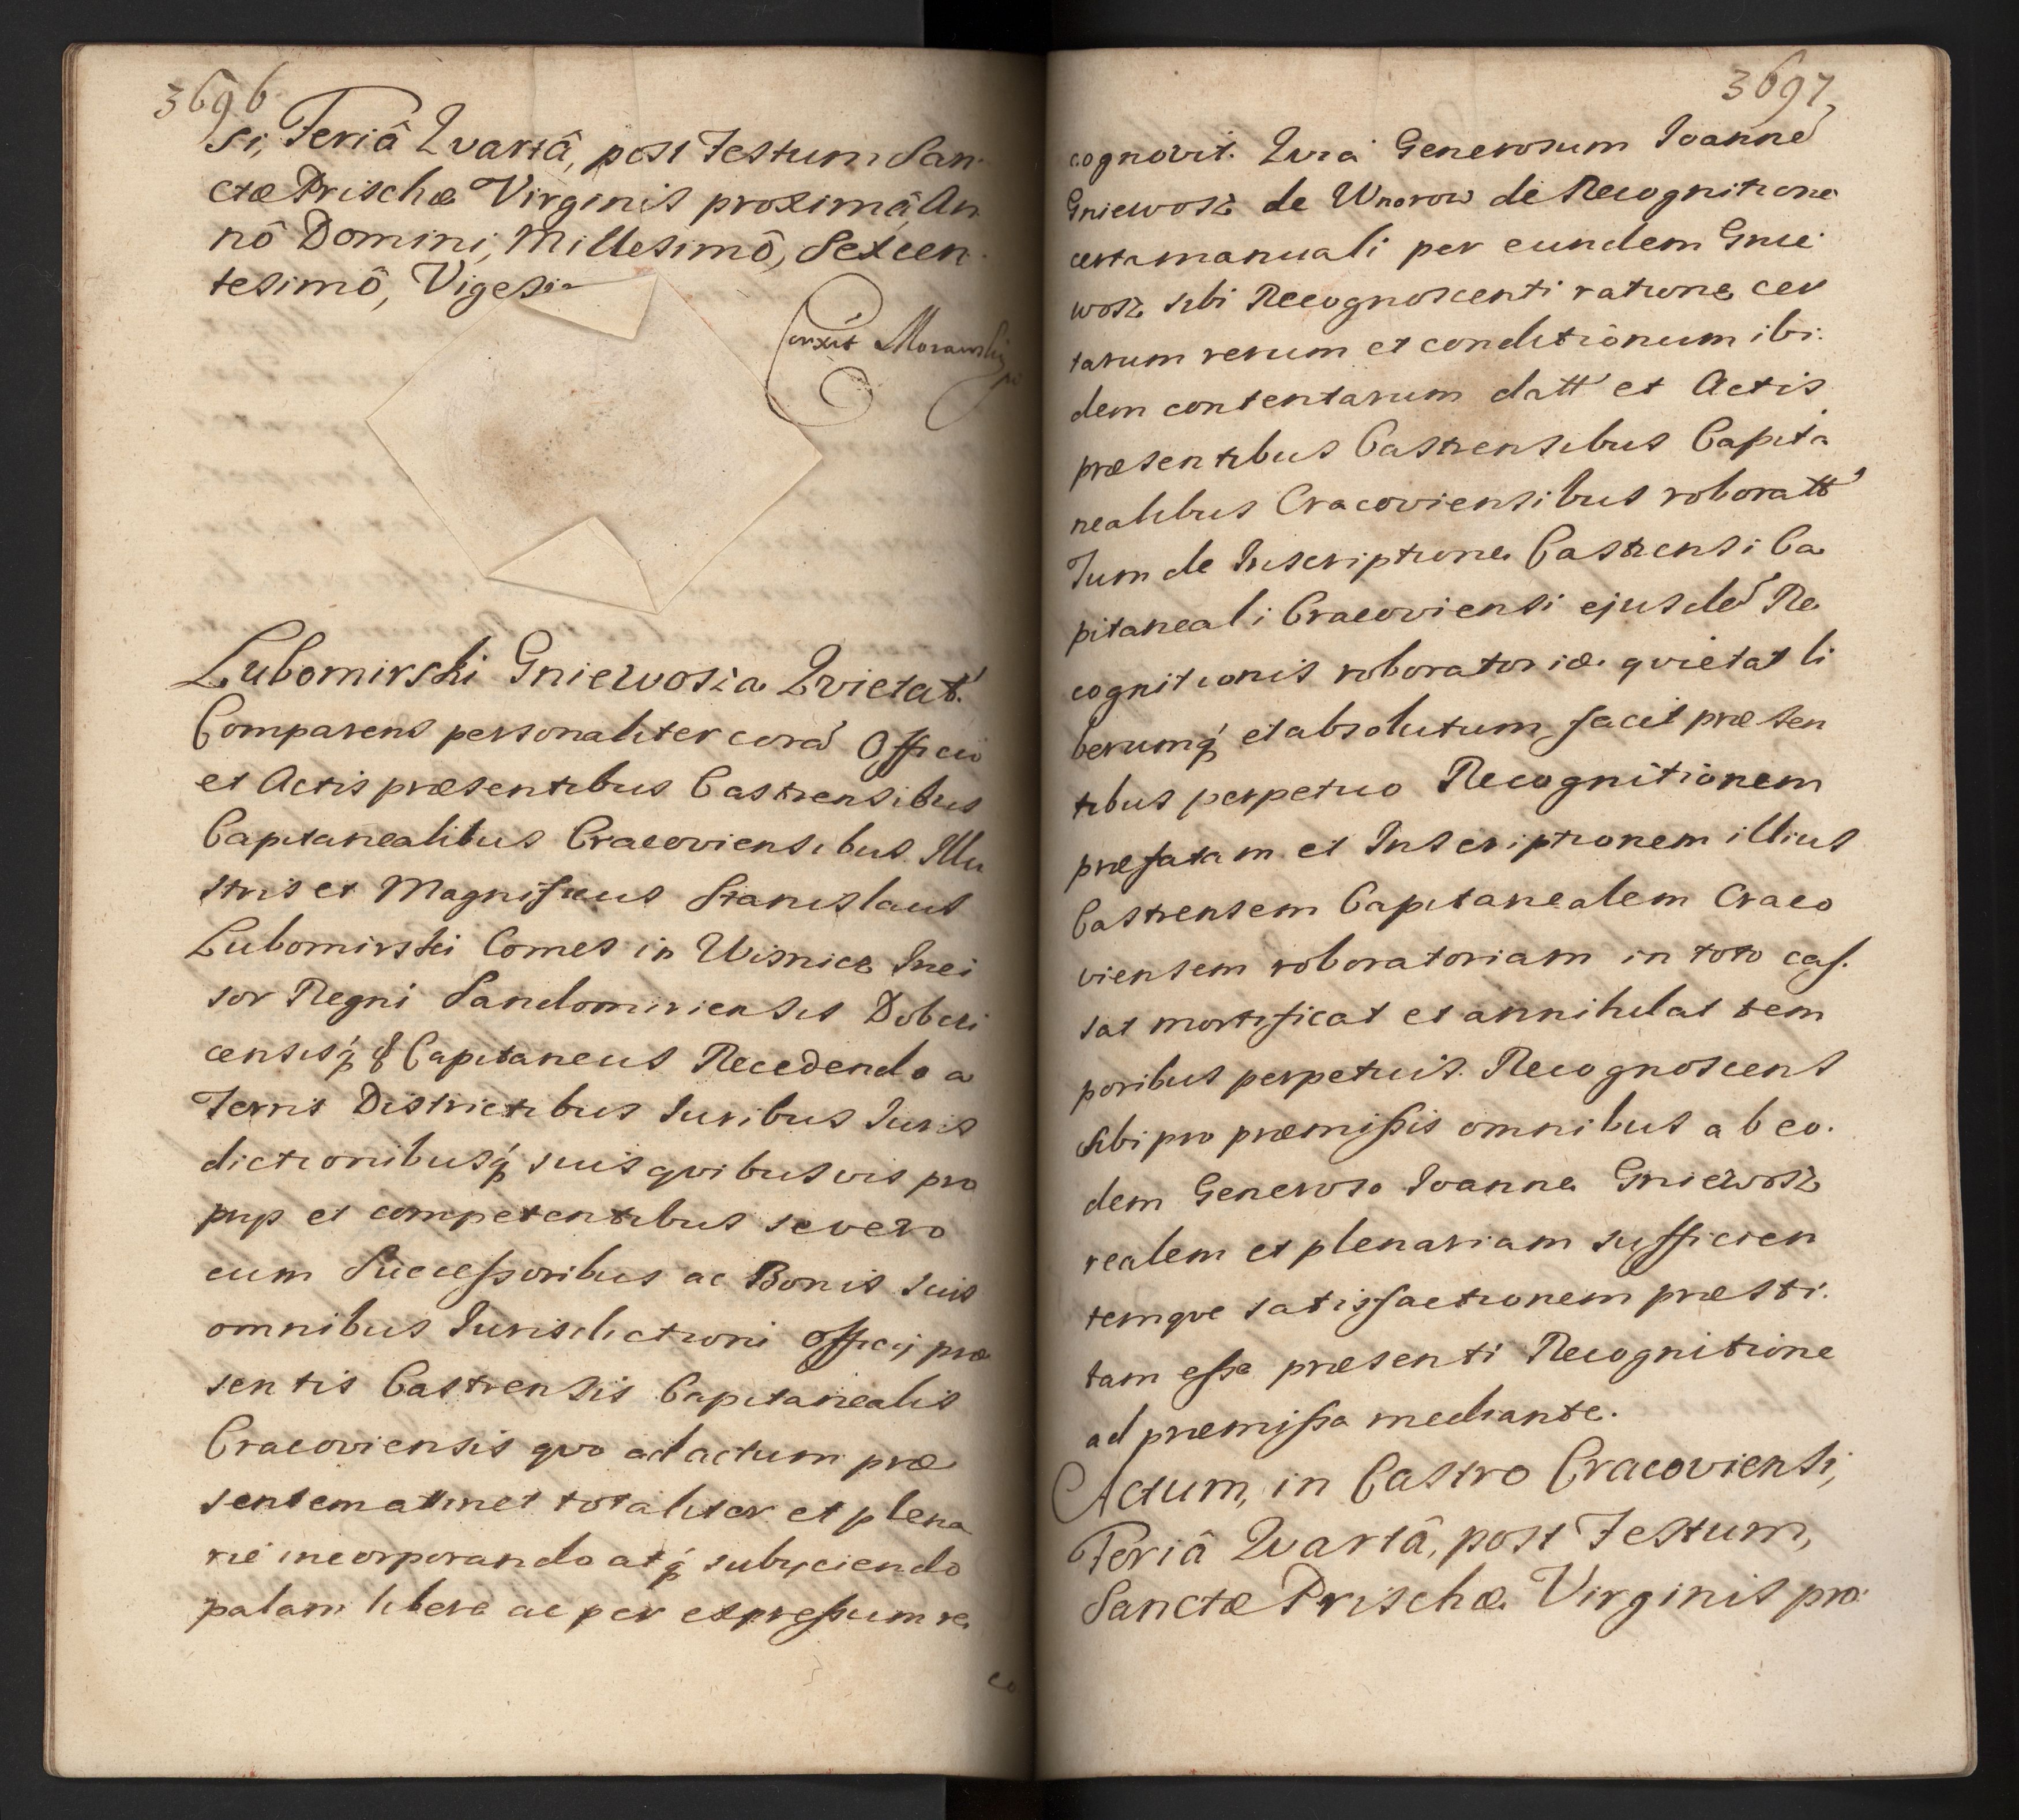 3696
si, Feriâ Qvartâ, post Festum San-
ctæ Prischæ Virginis proximâ, An
nô Domini, Millesimô, Sexcen-
tesimô, Vigesi
Conxit Morawski
Lubomirski Gniewosza Qvietat'
Comparens personaliter corã Officio
et Actis præsentibus Castrensibus
Capitanealibus Cracoviensibus Illu
stris et Magnificus Stanislaus
Lubomirski Comes in Wisnicz Inci
sor Regni Sandomiriensis Dobczi
censisq' & Capitaneus Recedendo a
Terris Districtibus Iuribus Iuris
dictionibusq' suis qvibusvis pro
prijs et competentibus se vero
cum Successoribus ac Bonis suis
omnibus Iurisdictioni Officij præ
sentis Castrensis Capitanealis
Cracoviensis qvo ad actum præ
sentem attinet totaliter et plena
rié incorporando atq' subijciendo
palam libere ac per expressum re
co
3697
cognovit. Qvia Generosum Ioannẽ
Gniewosz de Wnorow de Recognitione
certa manuali per eundem Gnie
wosz sibi Recognoscenti ratione cer
tarum rerum et conditionum ibi:
dem contentarum datt' et Actis
præsentibus Castrensibus Capita
nealibus Cracoviensibus roboratt'
Tum de Inscriptione Castrensi Ca
pitaneali Cracoviensi ejusdẽ Re
cognitionis roboratoriæ qvietat li
berumq' et absolutum facit præsen
tibus perpetuo Recognitionem
præfatam et Inscriptionem illius
Castrensem Capitanealem Craco
viensem roboratoriam in toto cas.
sat mortificat et annihilat tem
poribus perpetuis. Recognoscens
sibi pro præmissis omnibus ab eo.
dem Generoso Ioanne Gniewosz
realem et plenariam sufficien
temqve satisfactionem præsti.
tam esse præsenti Recognitione
ad præmissa mediante.
Actum, in Castro Cracoviensi,
Feriâ Qvartâ, post Festum,
Sanctæ Prischæ Virginis pro: